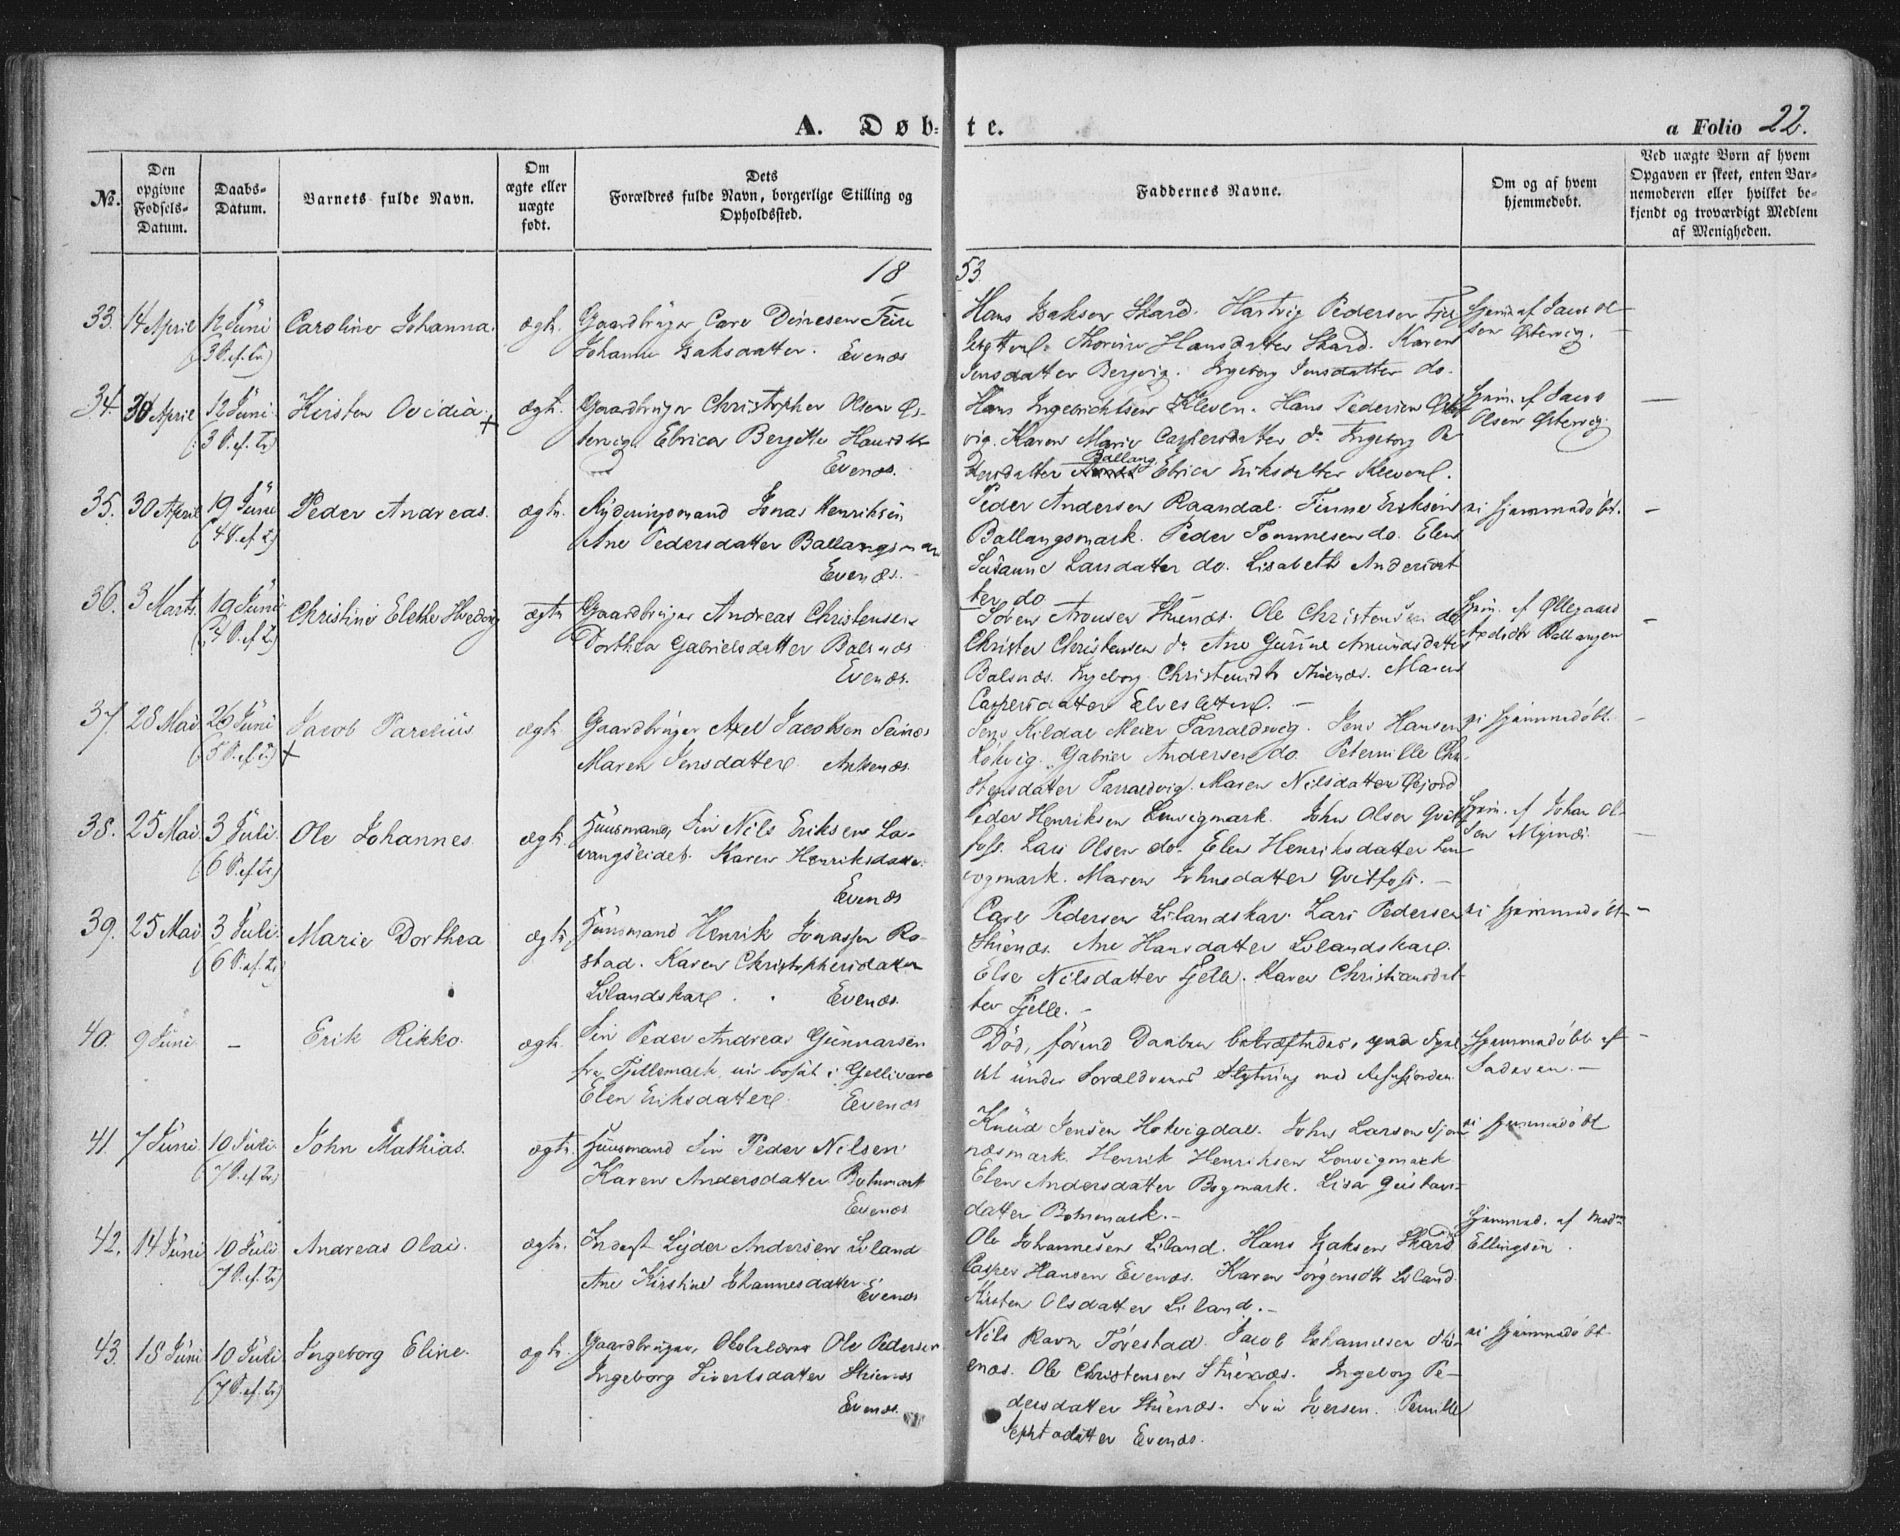 A. Døb-te.
a Folio 22.
No.
Den opgivne Fødsels-Datum.
Daabs-Datum.
Barnets fulde Navn.
Om ægte eller uægte født.
Dets Forældres fulde Navn, borgerlige Stilling og Opholdssted.
Faddernes Navne.
Om og af hvem hjemmedøbt.
Ved uægte Børn af hvem Opgaven er skeet, enten Barnemoderen eller hvilket bekjendt og troværdigt Medlem af Menigheden.
1853.
33. 14 April 12 Juni Caroline Johanna. ægte.
(3 S. ef. Tr)
Gaardbruger Carl
Johanne Isaksdatter. Evenæs
Hans Isaksen Skard. Hartvig Pedersen
Thorine Hansdatter Skard. Karen
Jensdatter Bergvig. Ingeborg Jensdatter do.
Hjem. af Jacob Olsen Østervig.
34. 30 April 12 Juni Kirsten Ovidia. + ægte.
(3 S. ef. Tr)
Gaardbruger Christopher Olsen Østervig. Elrica Bergitte
Evenæs.
Hans Ingebrichtsen Kleven. Hans Pedersen Østervig. Karen Marie Caspersdatter do. Ingeborg Pedersdatter Ballang. Elrica Eriksdatter Kleven.
Hjem. af Jacob
Olsen Østervig
35. 30 April 19 Juni Peder Andreas. ægte.
(4 S. ef. Tr)
Rydningsmand Jonas Henriksen
Ane Pedersdatter Ballangsmark
Evenæs.
Peder Andersen Raandal. Finne Eriksen
Ballangsmark. Peder Tommesen do. Elen
Susanne Larsdatter do. Lisabeth Andersdatter do
ei hjemmedøbt.
36. 3 Marts. 19 Juni Christine Elethe Hvedevig ægte
(4 S. ef. Tr)
Gaardbruger Andreas Christensen
Dorthea Gabrielsdatter Balsnæs
Evenæs.
Søren Aronsen Stuenæs. Ole Christensen do
Christen Christensen do Ane Gurine Amundsdatter
Balsnæs. Ingeborg Christensdtr Stuenæs. Maren
Caspersdatter Elvesletten.
Hjem. af Øllegaard
Axelsdtr Ballangen
37. 28 Mai 26 Juni Jacob Parelius ægte.
(5 S. ef. Tr) +
Gaardbruger Axel Jacobsen Seinæs
Maren Jensdatter. Ankenæs.
Jens Kildal Meier Tarraldsvig. Jens Hansen
Gabriel Andersen do. Peternille
Tarraldsvig. Maren Nilsdatter
ei hjemmedøbt.
38. 25 Mai 3 Juli. Ole Johannes. ægte.
(6 S. ef. Tr)
Huusmand, Fin Nils Eriksen Lavangseidet. Karen Henriksdatter.
Evenæs
Peder Henriksen Lenvigmark. John Olsen Qvitfoss. Lars Olsen do. Elen Henriksdatter Lenvigmark. Maren Johnsdatter Qvitfoss.
Hjem. af Johan Olsen
39. 25 Mai 3 Juli. Marie Dorthea ægte
(6 S. ef. Tr)
Huusmand Henrik Jonassen Rostad. Karen Christophersdatter
Lilandskar. Evenæs.
Carl Pedersen Lilandskar. Lars Pedersen
Stuenæs. Ane Hansdatter Lilandskar.
Else Nilsdatter Fjelle. Karen Christiansdatter Fjelle.
ei hjemmedøbt
40. 9 Juni – Erik Rikko. ægte.
Fin Peder Andreas Gunnarsen
fra Fjellemark, nu bosat i Gellivare
Elen Eriksdatter. Evenæs
Død, førend Daaben bekræftedes,
det under Forældrenes Flytning
Hjemmedøbt af
Faderen.
41. 7 Juni. 10 Juli. John Mathias. ægte.
(7 S. ef. Tr)
Huusmand Fin Peder Nilsen
Karen Andersdatter Botnmark
Evenæs
Knud Jensen Hokvigdal. John Larsen
Henrik Henriksen Lenvigmark
Elen Andersdatter Bogmark. Lisa Gustavsdatter Botnmark.
ei hjemmedøbt
42. 14 Juni 10 Juli Andreas Olai. ægte.
(7 S. ef. Tr)
Inderst Lyder Andersen Liland
Ane Kirstine Johannesdatter. Evenæs
Ole Johannesen Liland. Hans Isaksen Skard
Casper Hansen Evenæs. Karen Jørgensdtr Liland.
Kirsten Olsdatter Liland.
Hjemmed. af Mad.
Ellingsen.
43. 18 Juni 10 Juli Ingeborg Eline. ægte.
(7 S. ef. Tr)
Gaardbruger, Skolelærer Ole Pedersen
Ingeborg Sivertsdatter Stuenæs
Evenæs.
Nils Ravn Tørestad. Jacob Johannesen Stuenæs. Ole Christensen Stuenæs. Ingeborg Pedersdatter Stuenæs. Iversen. Pernille
Evenæs.
ei hjemmedøbt.